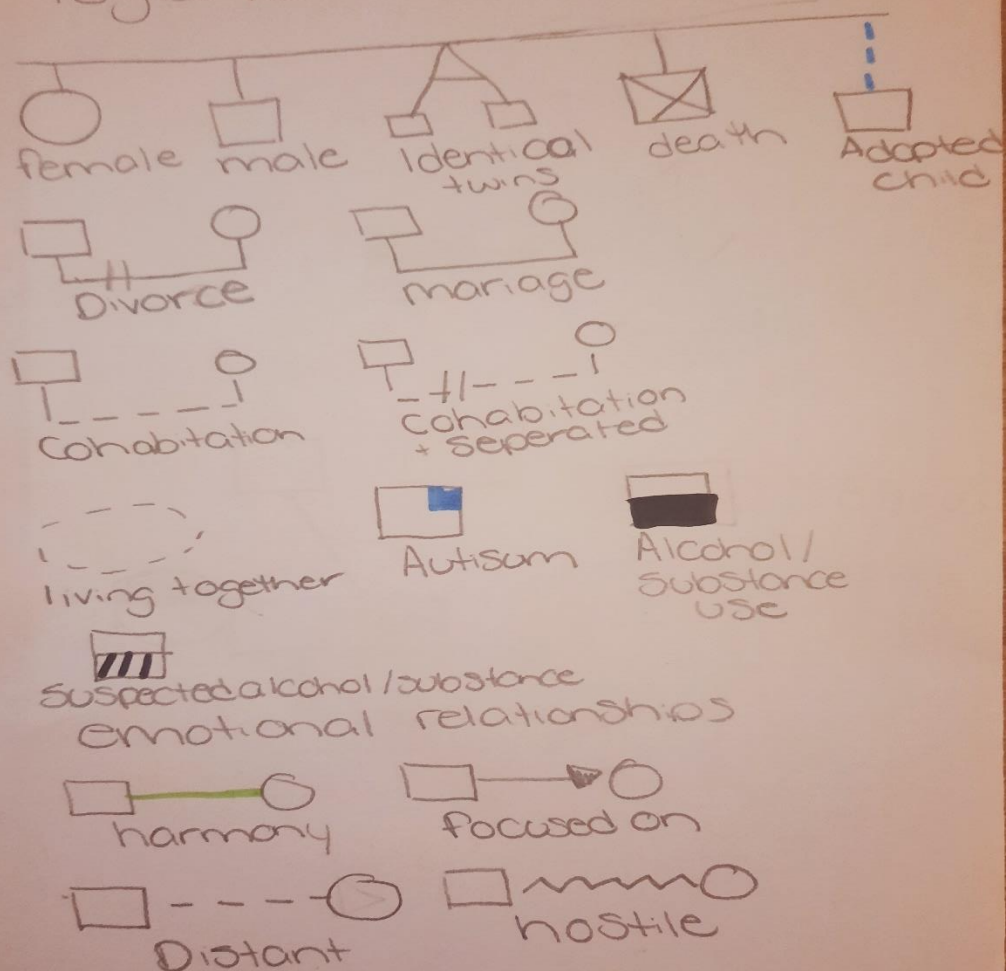 female male Identical death Adopted
twins child
Divorce mariage
Cohabitation cohabitation
+ seperated
living together Autisum Alcohol/
substance
use
suspected alcohol/substance
emotional relationships
harmony focused on
Distant hostile